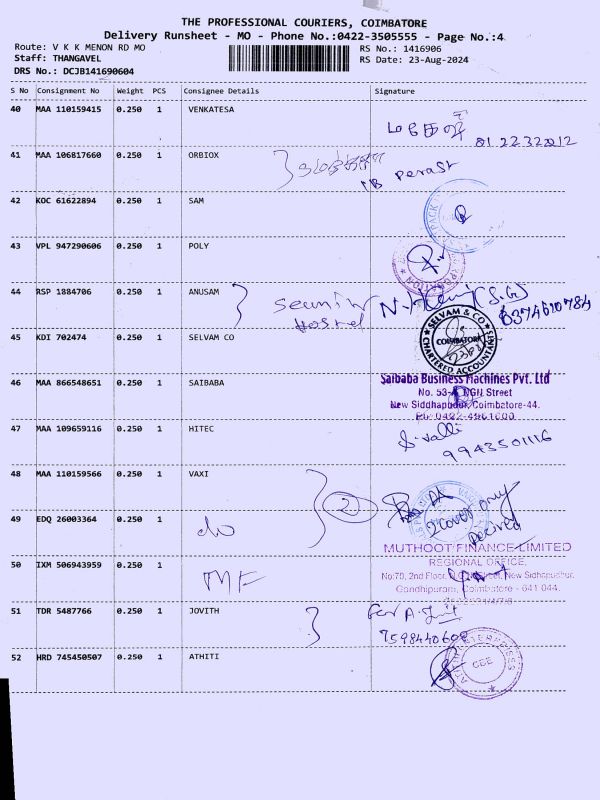 THE PROFESSIONAL COURIERS, COIMBATORE
Delivery Runsheet - MO - Phone No.:0422-3505555 - Page No.:4
Route: V K K MENON RD MO
RS No.: 1416906
Staff: THANGAVEL
RS Date: 23-Aug-2024
DRS No.: DCJB141690604
S No Consignment No Weight PCS Consignee Details Signature
40 MAA 110159415 0.250 1 VENKATESA
41 MAA 106817660 0.250 1 ORBIOX
42 KOC 61622894 0.250 1 SAM
43 VPL 947290606 0.250 1 POLY
44 RSP 1884706 0.250 1 ANUSAM
Hostel
8374670784
45 KDI 702474 0.250 1 SELVAM CO
SELVAM & CO
COIMBATORE
CHARTERED ACCOUNTANTS
46 MAA 866548651 0.250 1 SAIBABA
Saibaba Business Machines Pvt. Ltd
No. 53-A, NGN Street
New Siddhapudur, Coimbatore-44.
47 MAA 109659116 0.250 1 HITEC
S. Valli
9943501116
48 MAA 110159566 0.250 1 VAXI
2
2 cover only
49 EDQ 26003364 0.250 1
do
MUTHOOT FINANCE LIMITED
REGIONAL OFFICE,
50 IXM 506943959 0.250 1
MF
No:70, 2nd Floor, Street, New Sidhapudur,
Gandhipuram, Coimbatore - 641 044.
51 TDR 5487766 0.250 1 JOVITH
7598440608
52 HRD 745450507 0.250 1 ATHITI